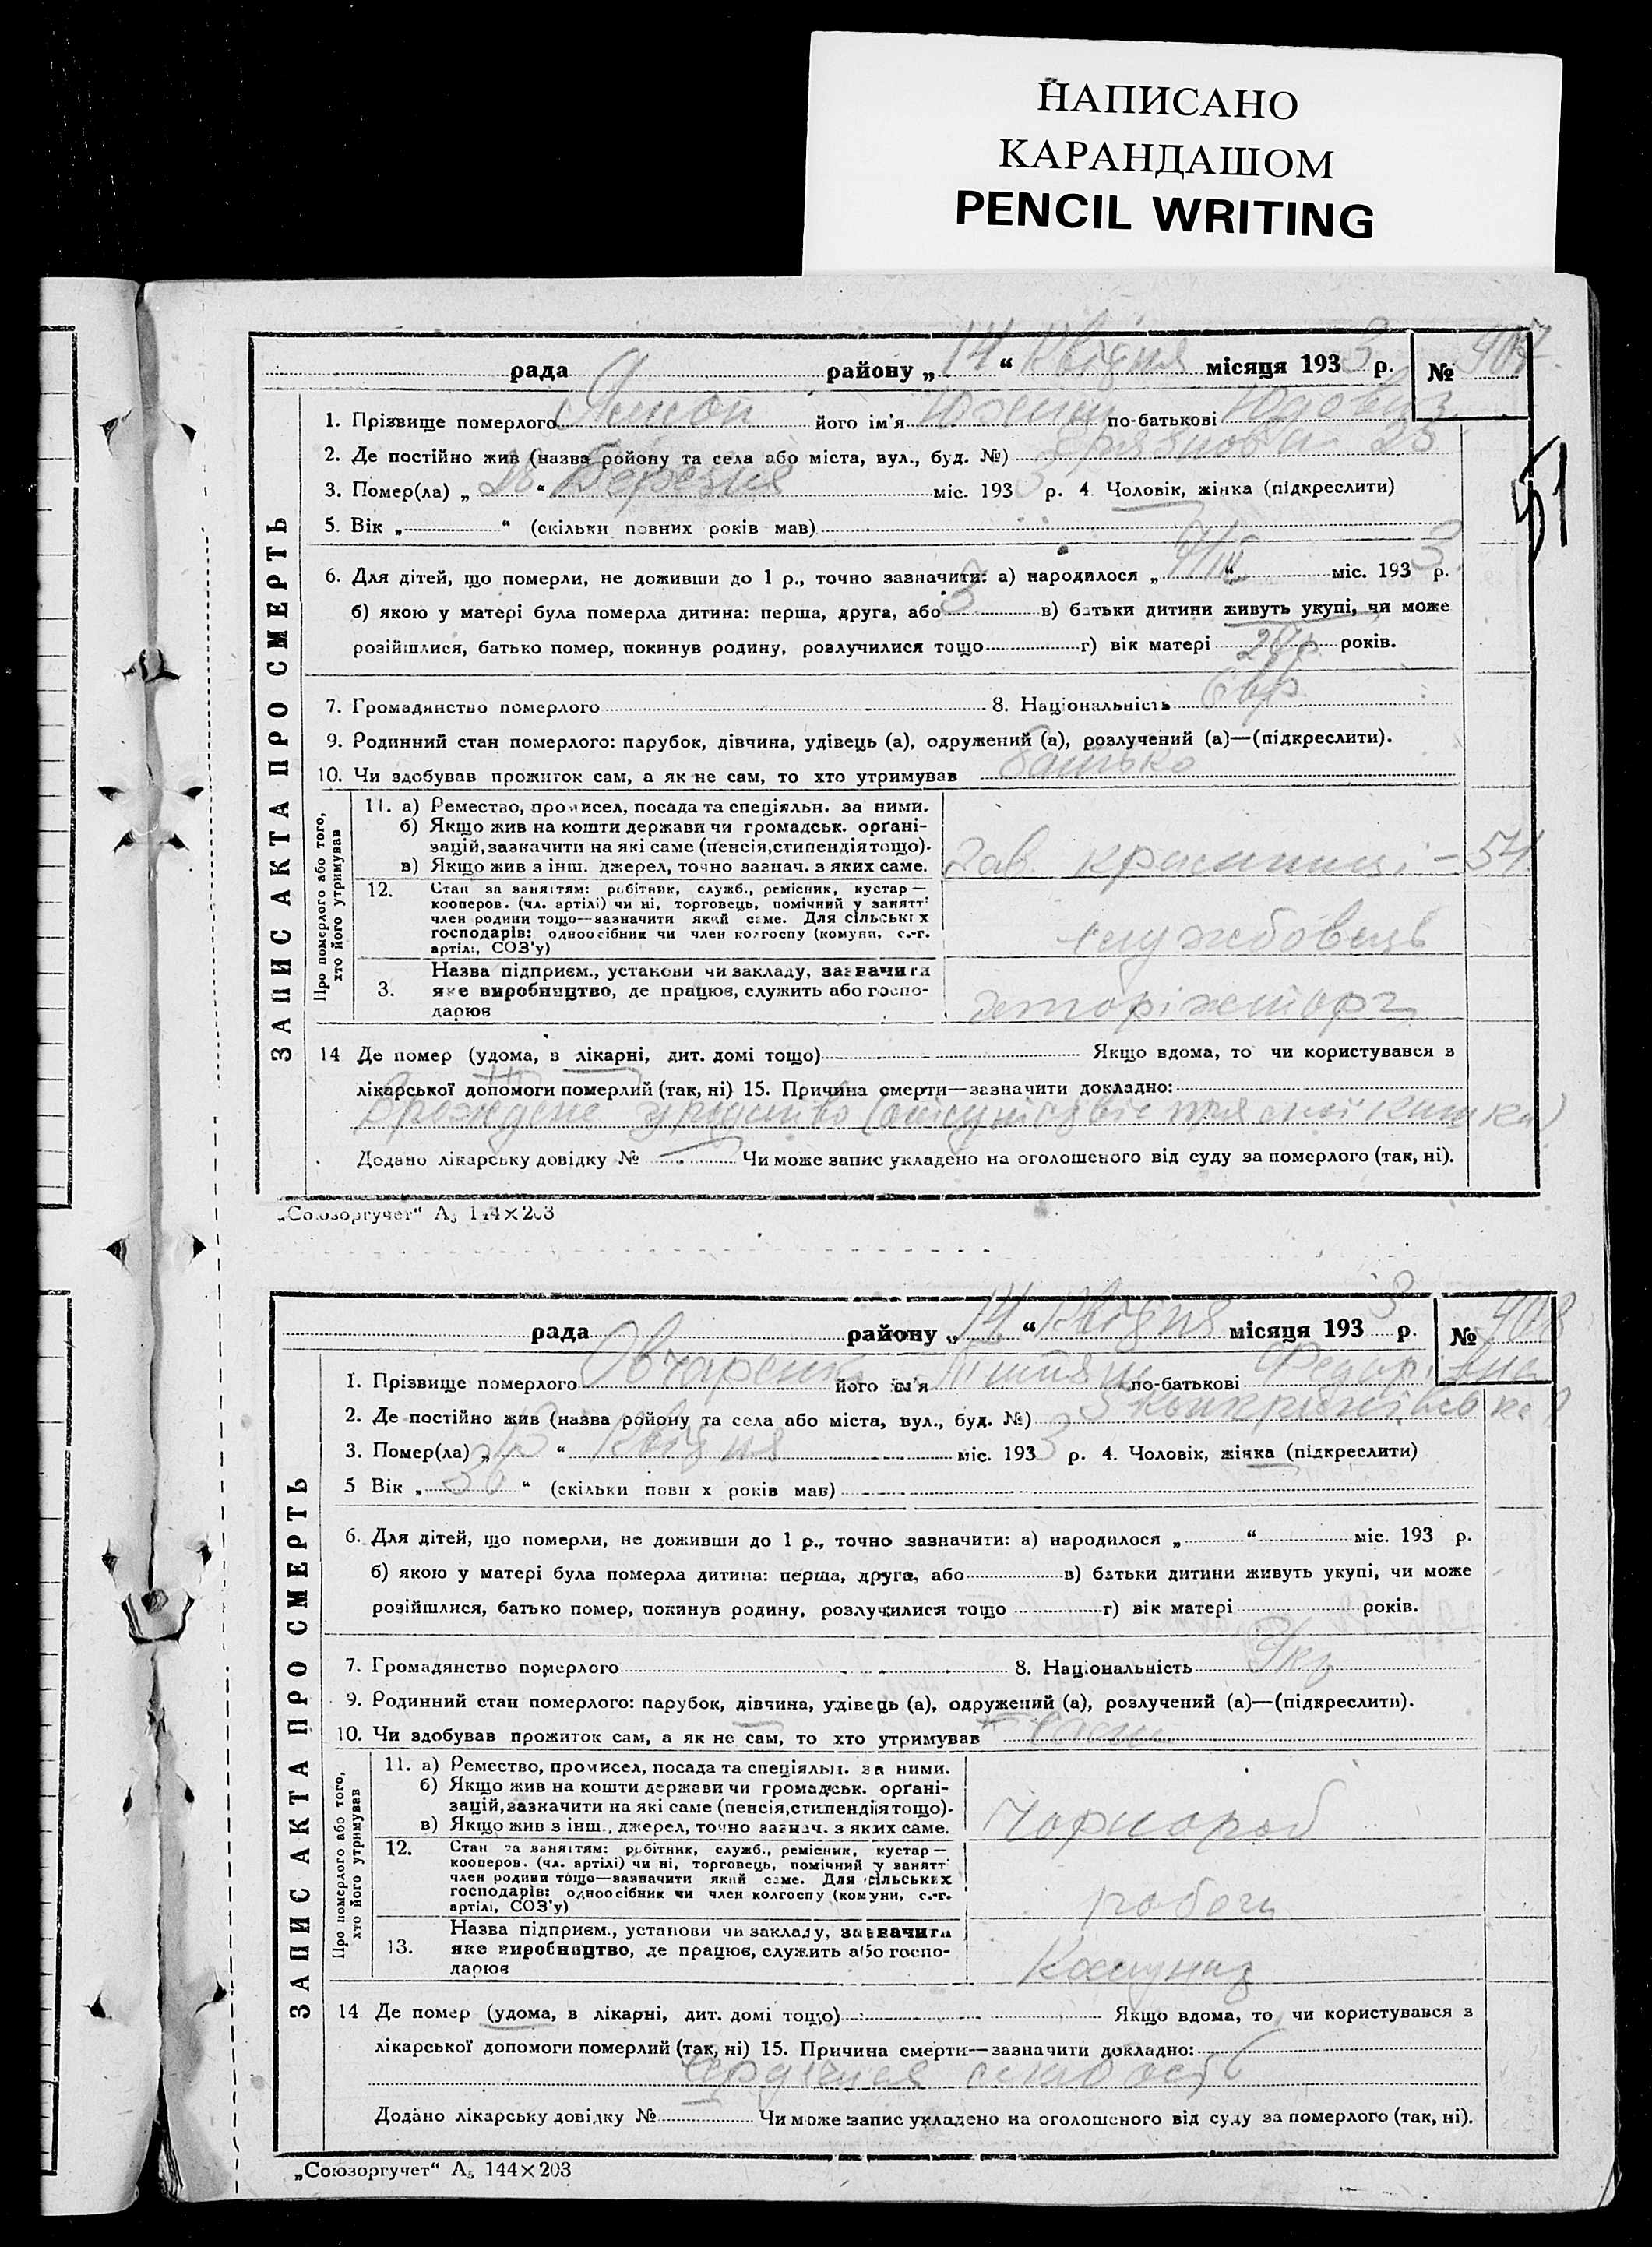 НАПИСАНО
КАРАНДАШОМ
PENCIL WRITING
рада району „ 14 “ Квітня місяця 193 3 р. № 907
1. Прізвище померлого його ім'я по-батькові
2. Де постійно жив (назва ройону та села або міста, вул., буд. №) 23
3. Помер(ла) „ 28 “ Березня міс. 193 3 р. 4. Чоловік, жінка (підкреслити)
51
5. Вік „ “ (скільки повних років мав)
6. Для дітей, що померли, не доживши до 1 р., точно зазначити: а) народилося „ “ міс. 193 3 р.
б) якою у матері була померла дитина: перша, друга, або 3 в) батьки дитини живуть укупі, чи може
розійшлися, батько помер, покинув родину, розлучилися тощо г) вік матері років.
7. Громадянство померлого 8. Національність Євр.
9. Родинний стан померлого: парубок, дівчина, удівець (а), одружений (а), розлучений (а)—(підкреслити).
10. Чи здобував прожиток сам, а як не сам, то хто утримував батько
ЗАПИС АКТА ПРО СМЕРТЬ
Про померлого або того, хто його утримував
11. а) Ремество, промисел, посада та спеціяльн. за ними.
б) Якщо жив на кошти держави чи громадськ. орґані-
зацій, зазначити на які саме (пенсія, стипендія тощо).
в) Якщо жив з інш. джерел, точно зазнач. з яких саме.
Зав. крамниці - 54
12. Стан за заняттям: робітник, служб., ремісник, кустар —
кооперов. (чл. артілі) чи ні, торговець, помічний у занятті
член родини тощо—зазначити який саме. Для сільських
господарів: одноосібник чи член колгоспу (комуни, с.-г.
артілі, СОЗ'у)
службовець
3. Назва підприєм., установи чи закладу, зазначити
яке виробництво, де працює, служить або госпо-
дарює
14 Де помер (удома, в лікарні, дит. домі тощо) Якщо вдома, то чи користувався з
лікарської допомоги померлий (так, ні) 15. Причина смерти—зазначити докладно:
Врождене уродство
Додано лікарську довідку № Чи може запис укладено на оголошеного від суду за померлого (так, ні).
„Союзоргучет“ А₅ 144×203
рада району „ 14 “ Квітня місяця 193 3 р. № 908
1. Прізвище померлого Овчаренко його ім'я по-батькові Федорівна
2. Де постійно жив (назва ройону та села або міста, вул., буд. №)
3. Помер(ла) „ “ Квітня міс. 193 3 р. 4. Чоловік, жінка (підкреслити)
5 Вік „ “ (скільки повн х років мав)
6. Для дітей, що померли, не доживши до 1 р., точно зазначити: а) народилося „ “ міс. 193 р.
б) якою у матері була померла дитина: перша, друга, або в) батьки дитини живуть укупі, чи може
розійшлися, батько помер, покинув родину, розлучилися тощо г) вік матері років.
7. Громадянство померлого 8. Національність Укр
9. Родинний стан померлого: парубок, дівчина, удівець (а), одружений (а), розлучений (а)—(підкреслити).
10. Чи здобував прожиток сам, а як не сам, то хто утримував
ЗАПИС АКТА ПРО СМЕРТЬ
Про померлого або того, хто його утримував
11. а) Ремество, промисел, посада та спеціяльн. за ними.
б) Якщо жив на кошти держави чи громадськ. орґані-
зацій, зазначити на які саме (пенсія, стипендія тощо).
в) Якщо жив з інш. джерел, точно зазнач. з яких саме.
Чорнороб
12. Стан за заняттям: робітник, служб., ремісник, кустар —
кооперов. (чл. артілі) чи ні, торговець, помічний у занятті
член родини тощо—зазначити який саме. Для сільських
господарів: одноосібник чи член колгоспу (комуни, с.-г.
артілі, СОЗ'у)
13. Назва підприєм., установи чи закладу, зазначити
яке виробництво, де працює, служить або госпо-
дарює
14 Де помер (удома, в лікарні, дит. домі тощо) Якщо вдома, то чи користувався з
лікарської допомоги померлий (так, ні) 15. Причина смерти—зазначити докладно:
Додано лікарську довідку № Чи може запис укладено на оголошеного від суду за померлого (так, ні).
„Союзоргучет“ А₅ 144×203